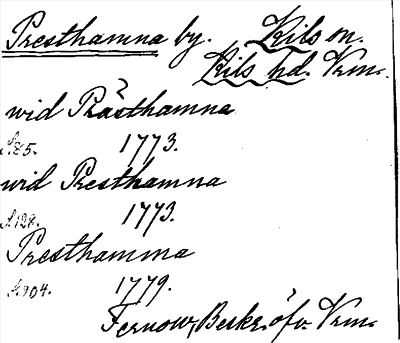 Presthamna by. Kils sn.
Kils hd. Vrm.
wid Prästhamna
s. 85. 1773.
wid Presthamna
s. 128. 1773.
Presthamma
s. 904. 1779.
Fernow, Beskr. öfv. Vrm.